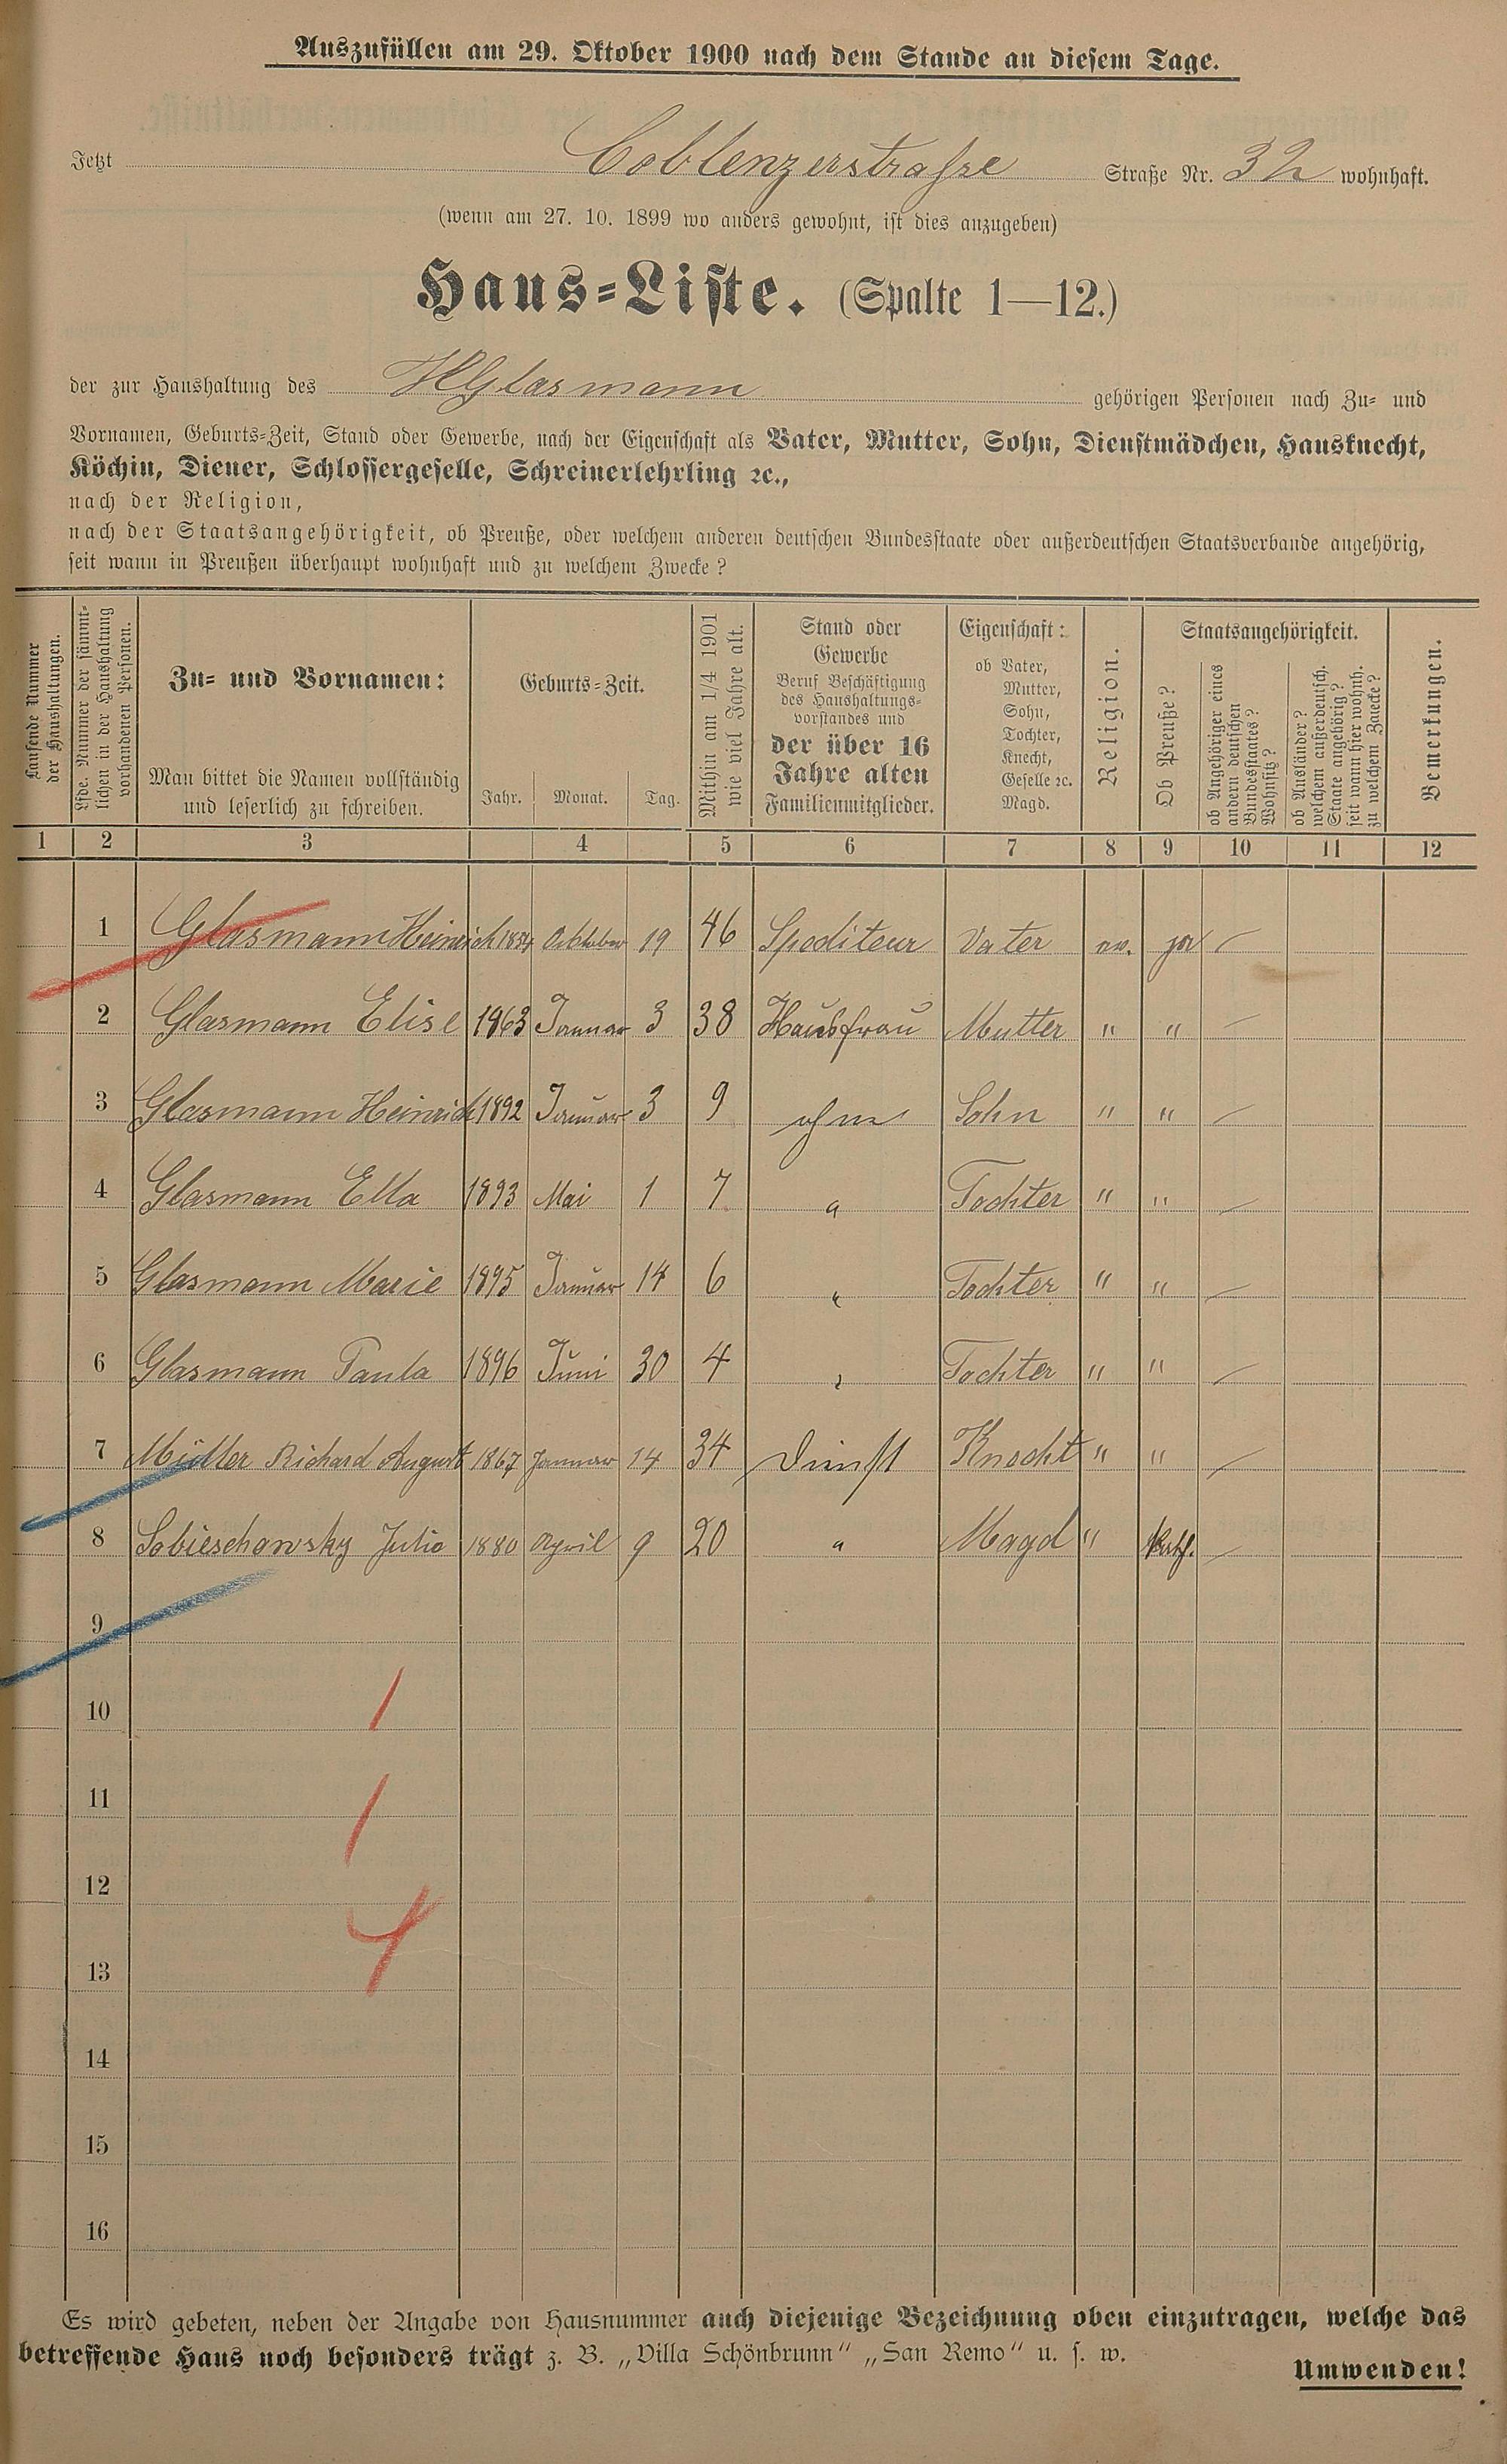 Auszufüllen am 29. Oktober 1900 nach dem Stande an diesem Tage.
Jetzt Coblenzerstraße Straße Nr. 32 wohnhaft.
(wenn am 27. 10. 1899 wo anders gewohnt, ist dies anzugeben)
Haus-Liste. (Spalte 1—12.)
der zur Haushaltung des HGlasmann gehörigen Personen nach Zu- und
Vornamen, Geburts-Zeit, Stand oder Gewerbe, nach der Eigenschaft als Vater, Mutter, Sohn, Dienstmädchen, Hausknecht,
Köchin, Diener, Schlossergeselle, Schreinerlehrling ꝛc.,
nach der Religion,
nach der Staatsangehörigkeit, ob Preuße, oder welchem anderen deutschen Bundesstaate oder außerdeutschen Staatsverbande angehörig,
seit wann in Preußen überhaupt wohnhaft und zu welchem Zwecke?
Laufende Nummer
der Haushaltungen.
Lfde. Nummer der sämmt-
lichen in der Haushaltung
vorhandenen Personen.
Zu- und Vornamen:
Man bittet die Namen vollständig
und leserlich zu schreiben.
Geburts-Zeit.
Jahr. Monat. Tag.
Mithin am 1/4 1901
wie viel Jahre alt.
Stand oder
Gewerbe
Beruf Beschäftigung
des Haushaltungs-
vorstandes und
der über 16
Jahre alten
Familienmitglieder.
Eigenschaft:
ob Vater,
Mutter,
Sohn,
Tochter,
Knecht,
Geselle ꝛc.
Magd.
Religion.
Staatsangehörigkeit.
Ob Preuße?
ob Angehöriger eines
andern deutschen
Bundesstaates?
Wohnsitz?
ob Ausländer?
welchem außerdeutsch.
Staate angehörig?
seit wann hier wohnh.
zu welchem Zwecke?
Bemerkungen.
1 2 3 4 5 6 7 8 9 10 11 12
1 Glasmann Heinrich 1854 October 19 46 Spediteur Vater ev. ja —
2 Glasmann Elise 1863 Januar 3 38 Hausfrau Mutter " " —
3 Glasmann Heinrich 1892 Januar 3 9 ohne Sohn " " —
4 Glasmann Ella 1893 Mai 1 7 " Tochter " " —
5 Glasmann Marie 1895 Januar 14 6 " Tochter " " —
6 Glasmann Paula 1896 Juni 30 4 " Tochter " " —
7 Müller Richard August 1867 Januar 14 34 Dienst Knecht " " —
8 Sobieschowsky Julie 1880 April 9 20 " Magd " —
9
10 1
11 1
12
13 4
14
15
16
Es wird gebeten, neben der Angabe von Hausnummer auch diejenige Bezeichnung oben einzutragen, welche das
betreffende Haus noch besonders trägt z. B. „Villa Schönbrunn" „San Remo" u. s. w.
Umwenden!